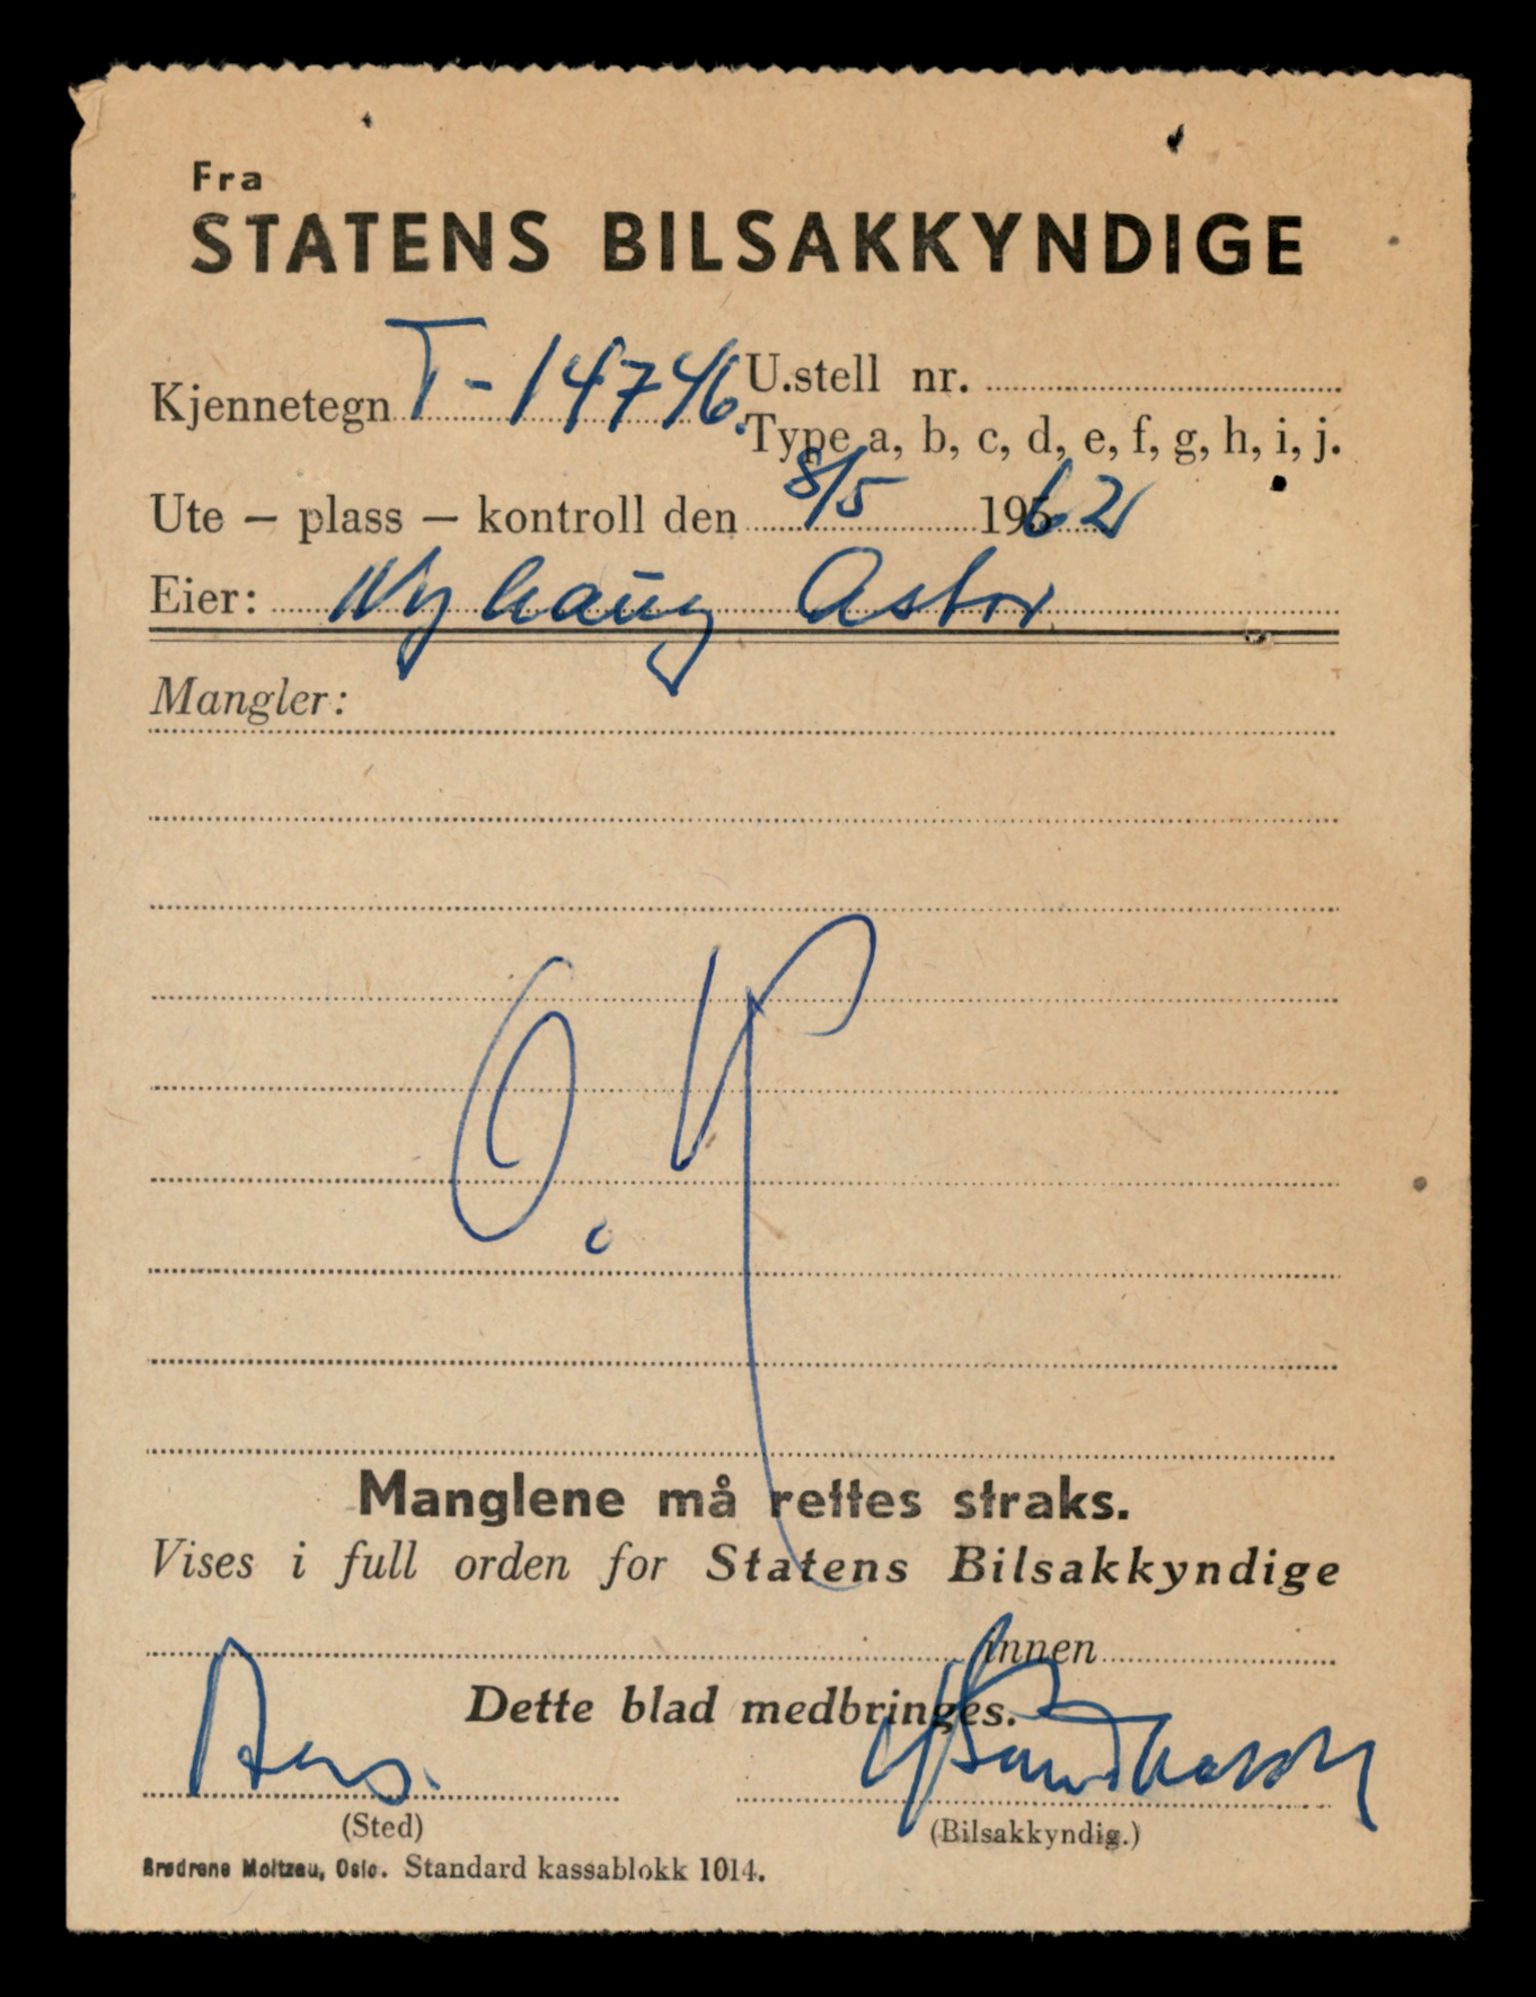 Fra
STATENS BILSAKKYNDIGE
Kjennetegn T-14746. U.stell nr.
Type a, b, c, d, e, f, g, h, i, j.
Ute – plass – kontroll den 8/5 1962
Eier: Nyhaug Astor
Mangler:
O.K
Manglene må rettes straks.
Vises i full orden for Statens Bilsakkyndige
innen
Dette blad medbringes.
(Sted)
(Bilsakkyndig.)
Brødrene Moltzau, Oslo. Standard kassablokk 1014.